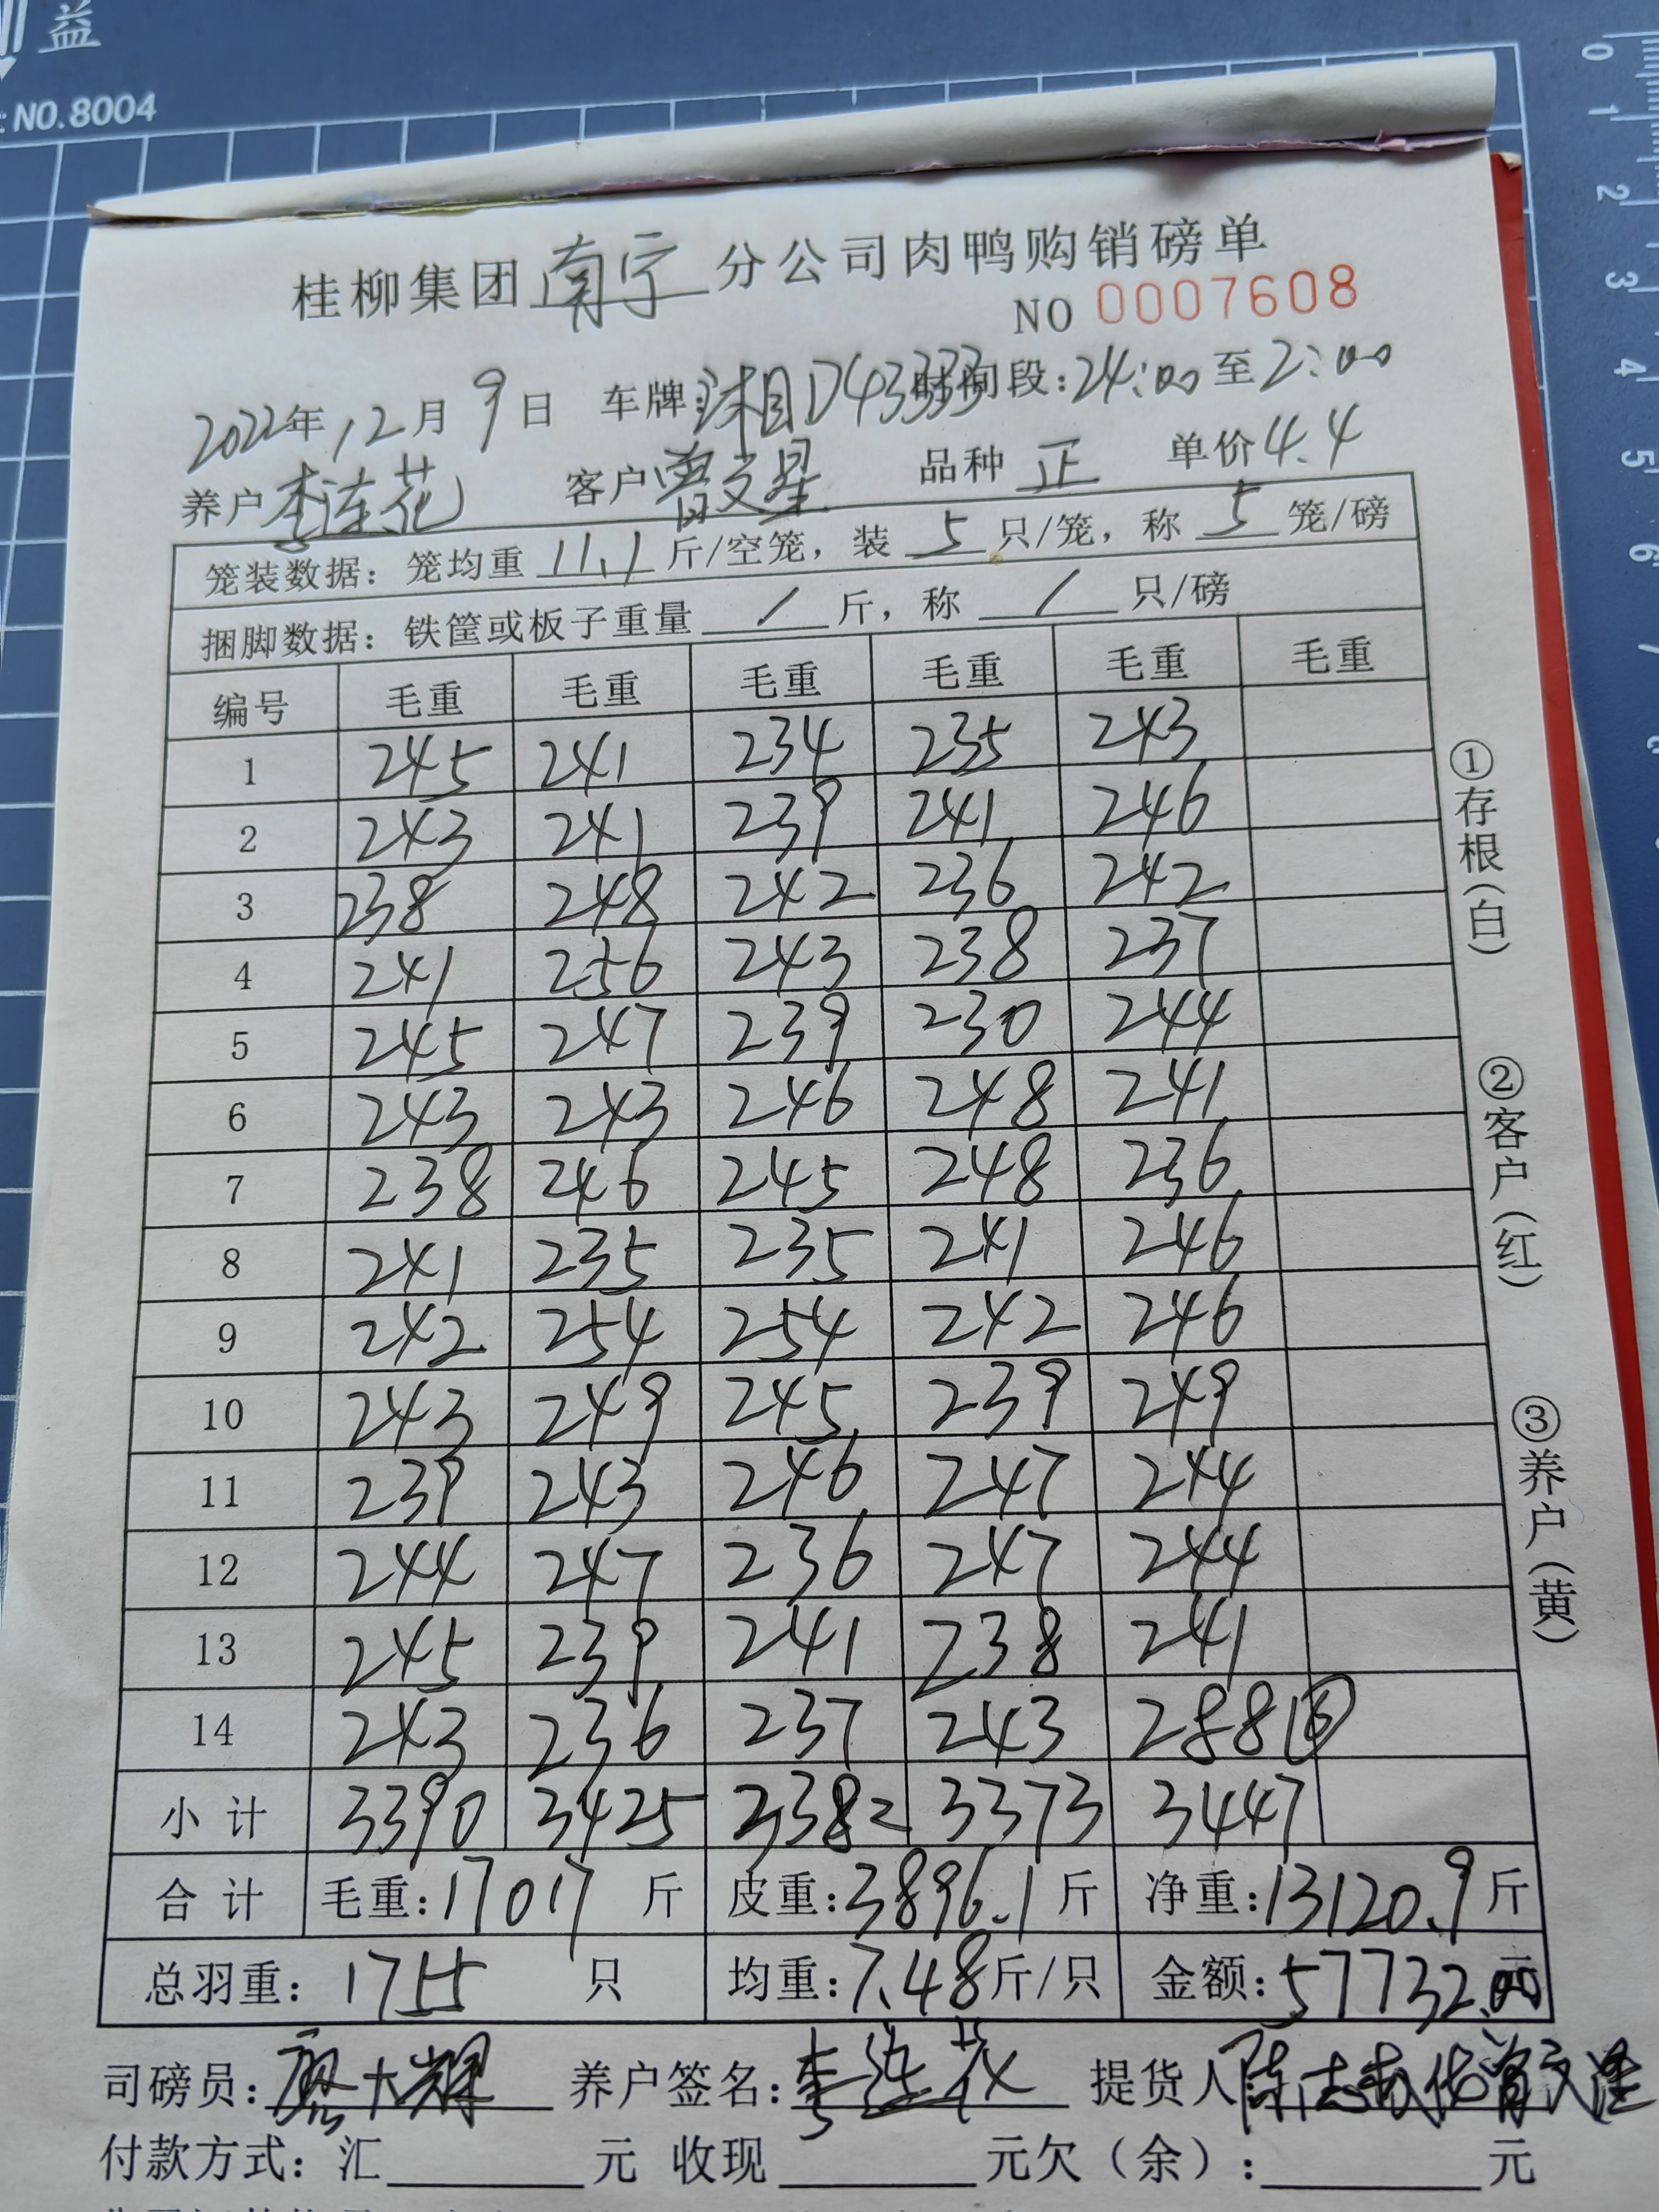 益
NO.8004
桂柳集团南宁分公司肉鸭购销磅单
NO 0007608
2022年12月9日 车牌: D43333 时间段:24:00至2:00
养户李连花 客户曾文星 品种正 单价4.4
笼装数据: 笼均重11.1斤/空笼, 装5只/笼, 称5笼/磅
捆脚数据: 铁筐或板子重量/斤, 称/只/磅
编号 毛重 毛重 毛重 毛重 毛重 毛重
1 245 241 234 235 243
2 243 241 239 241 246
3 238 248 242 236 242
4 241 256 243 238 237
5 245 247 239 230 244
6 243 243 246 248 241
7 238 246 245 248 236
8 241 235 235 241 246
9 242 254 254 242 246
10 243 249 245 239 249
11 239 243 246 247 244
12 244 247 236 247 244
13 245 239 241 238 241
14 243 236 237 243 288 ⑥
小计 3390 3425 3382 3373 3447
合计 毛重:17017斤 皮重:3896.1斤 净重:13120.9斤
总羽重: 1755只 均重:7.48斤/只 金额:57732.00元
司磅员: 养户签名:李连花 提货人:
付款方式: 汇 元 收现 元欠(余): 元
①存根(白)
②客户(红)
③养户(黄)
0
1
2
3
4
5
6
7